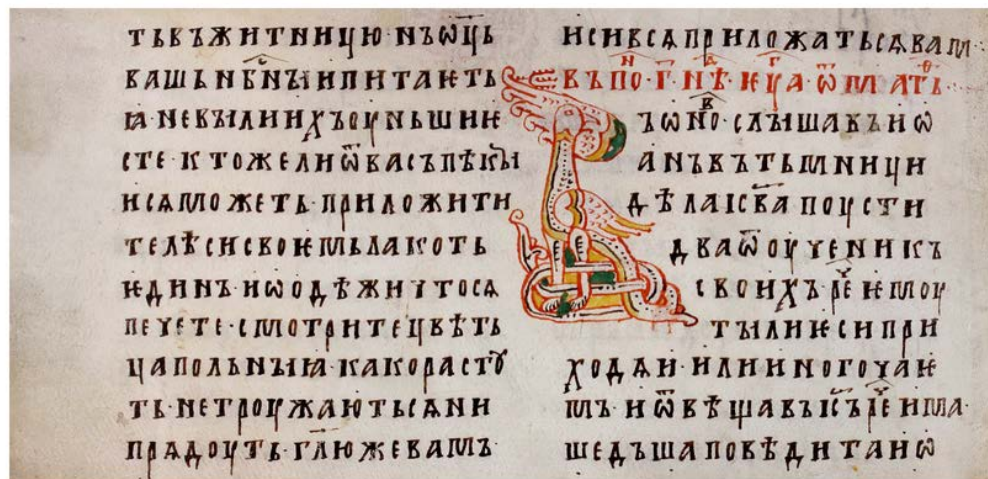 тьвъжитницю·нъѡц҃ь
вашьнб҃с҇нꙑипитаѥть
ꙗ·невꙑлиихъоуньшиѥ
сте·ктожелиѿвасъпекꙑ
исѧможеть·приложити
телѣсисвоѥмьлакоть
ѥдинъ·иѡодѣжичтосѧ
печете·смотритецвѣть
цапольнꙑꙗ·какорастꙋ
ть·нетроужаютьсѧни
прѧдоуть·гл҃южевамъ·
исивсѧприложатьсѧвамъ·
въпо·г҃·н҃·нѣ·д҃·ѥуⷢ҇а·ѿмаⷮ·ѳ҃·
ъѡноⷡ·слꙑшавъиѡ
анъвътьмници
дѣлаıс҃ва·поусти
дваѿоученикъ
своихъ·реⷱ҇ѥмоу
тꙑлиѥсипри
ходѧи·илииногочаѥ
мъ·иѿвѣщавъıс҃ъ·реⷱ҇има·
шедъшаповѣдитаиѡ